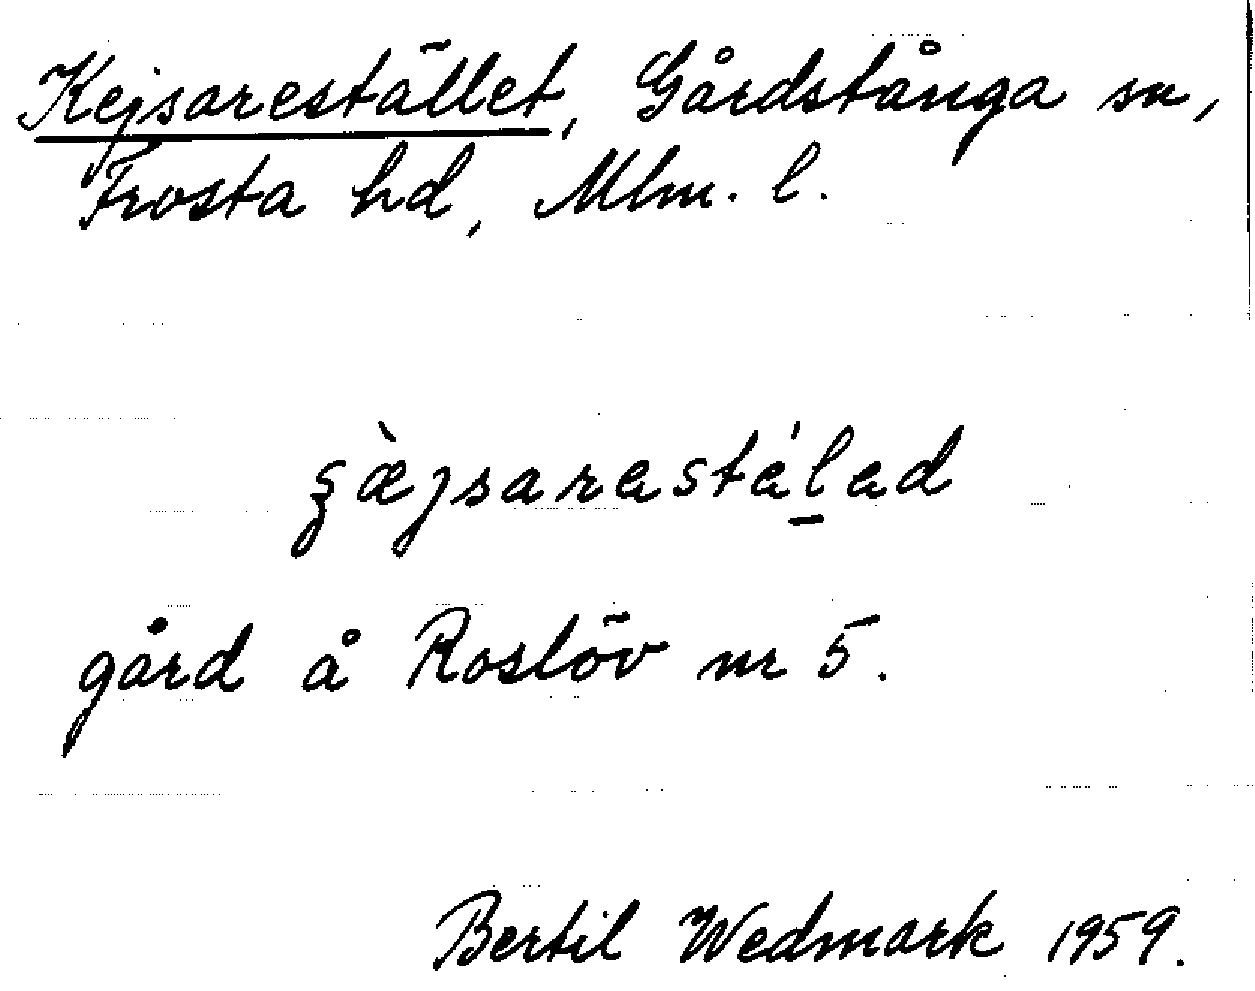 Kejsarestället, Gårdstånga sn,
Frosta hd, Mlm. l.
ʂæ̀jsarastál̲ad
gård å Roslöv nr 5.
Bertil Wedmark 1959.